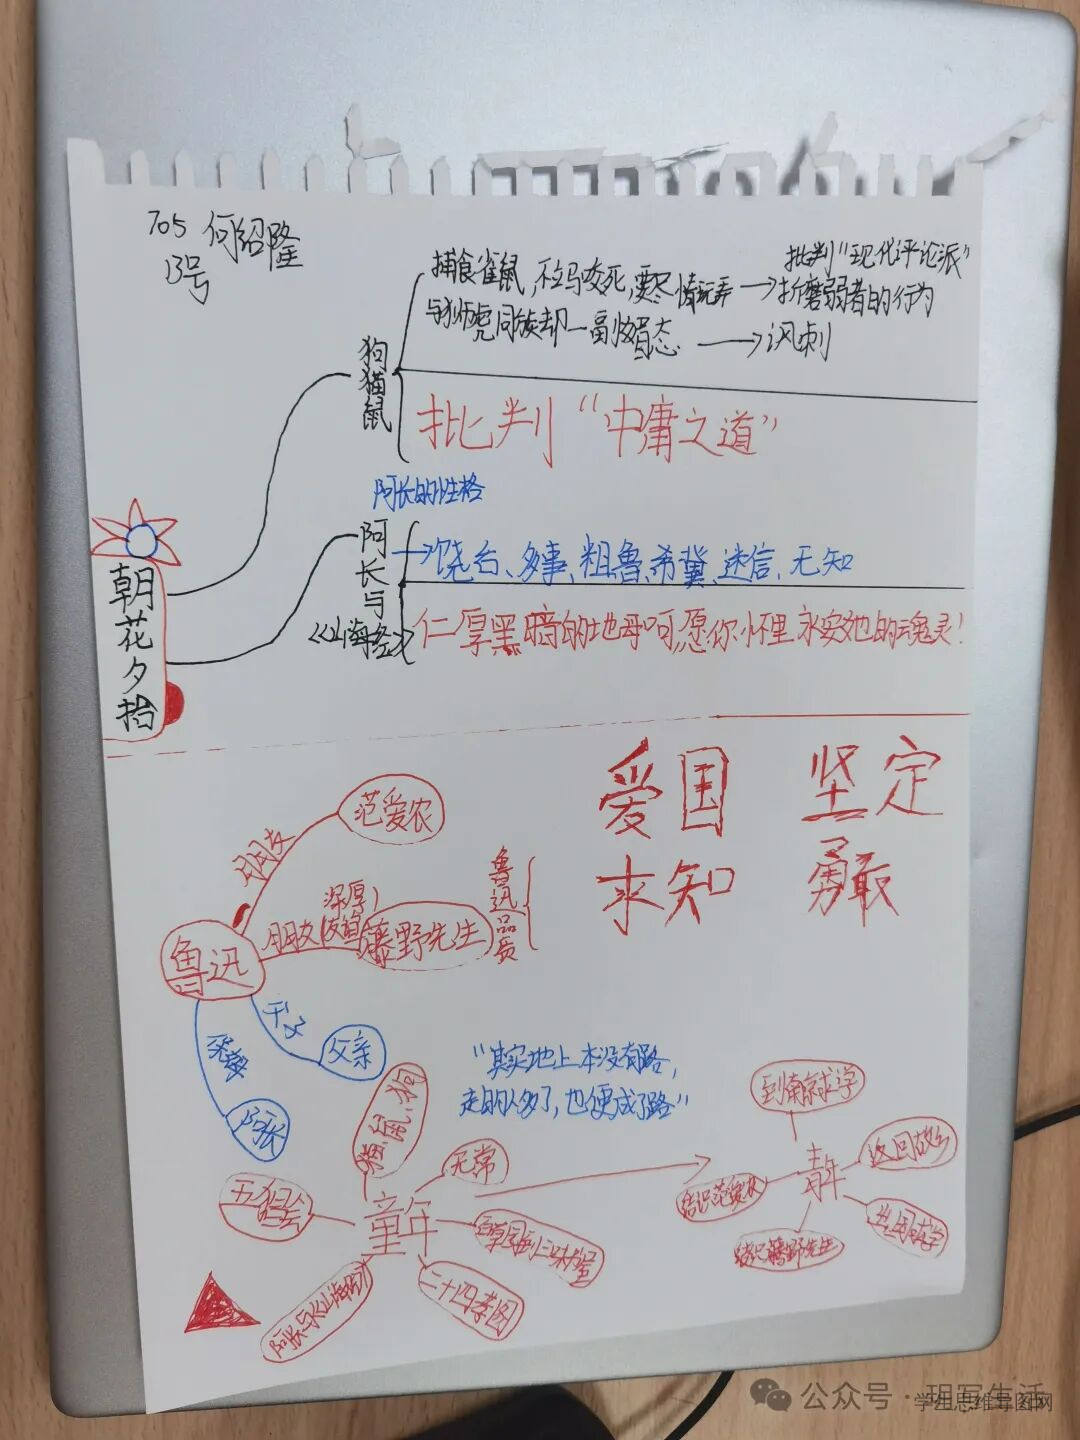 705 何绍隆
13号
捕食雀鼠,不立马咬死,要尽情玩弄
批判“现代评论派”
折磨弱者的行为
与狮虎同族却一副媚态
讽刺
狗猫鼠
批判“中庸之道”
阿长的性格
阿长与《山海经》
饶舌、多事、粗鲁、希冀、迷信、无知
仁厚黑暗的地母呵,愿你怀里永安她的魂灵!
朝花夕拾
爱国 坚定
求知 勇敢
鲁迅品质
范爱农
朋友
朋友
深厚
友谊
藤野先生
鲁迅
父子
父亲
阿长
“其实地上本没有路,
走的人多了,也便成了路”
猫、鼠、狗
无常
五猖会
童年
百草园到三味书屋
二十四孝图
阿长与《山海经》
到南京求学
返回故乡
青年
结识范爱农
结识藤野先生
公众号·玥写生活
学生思维导图网